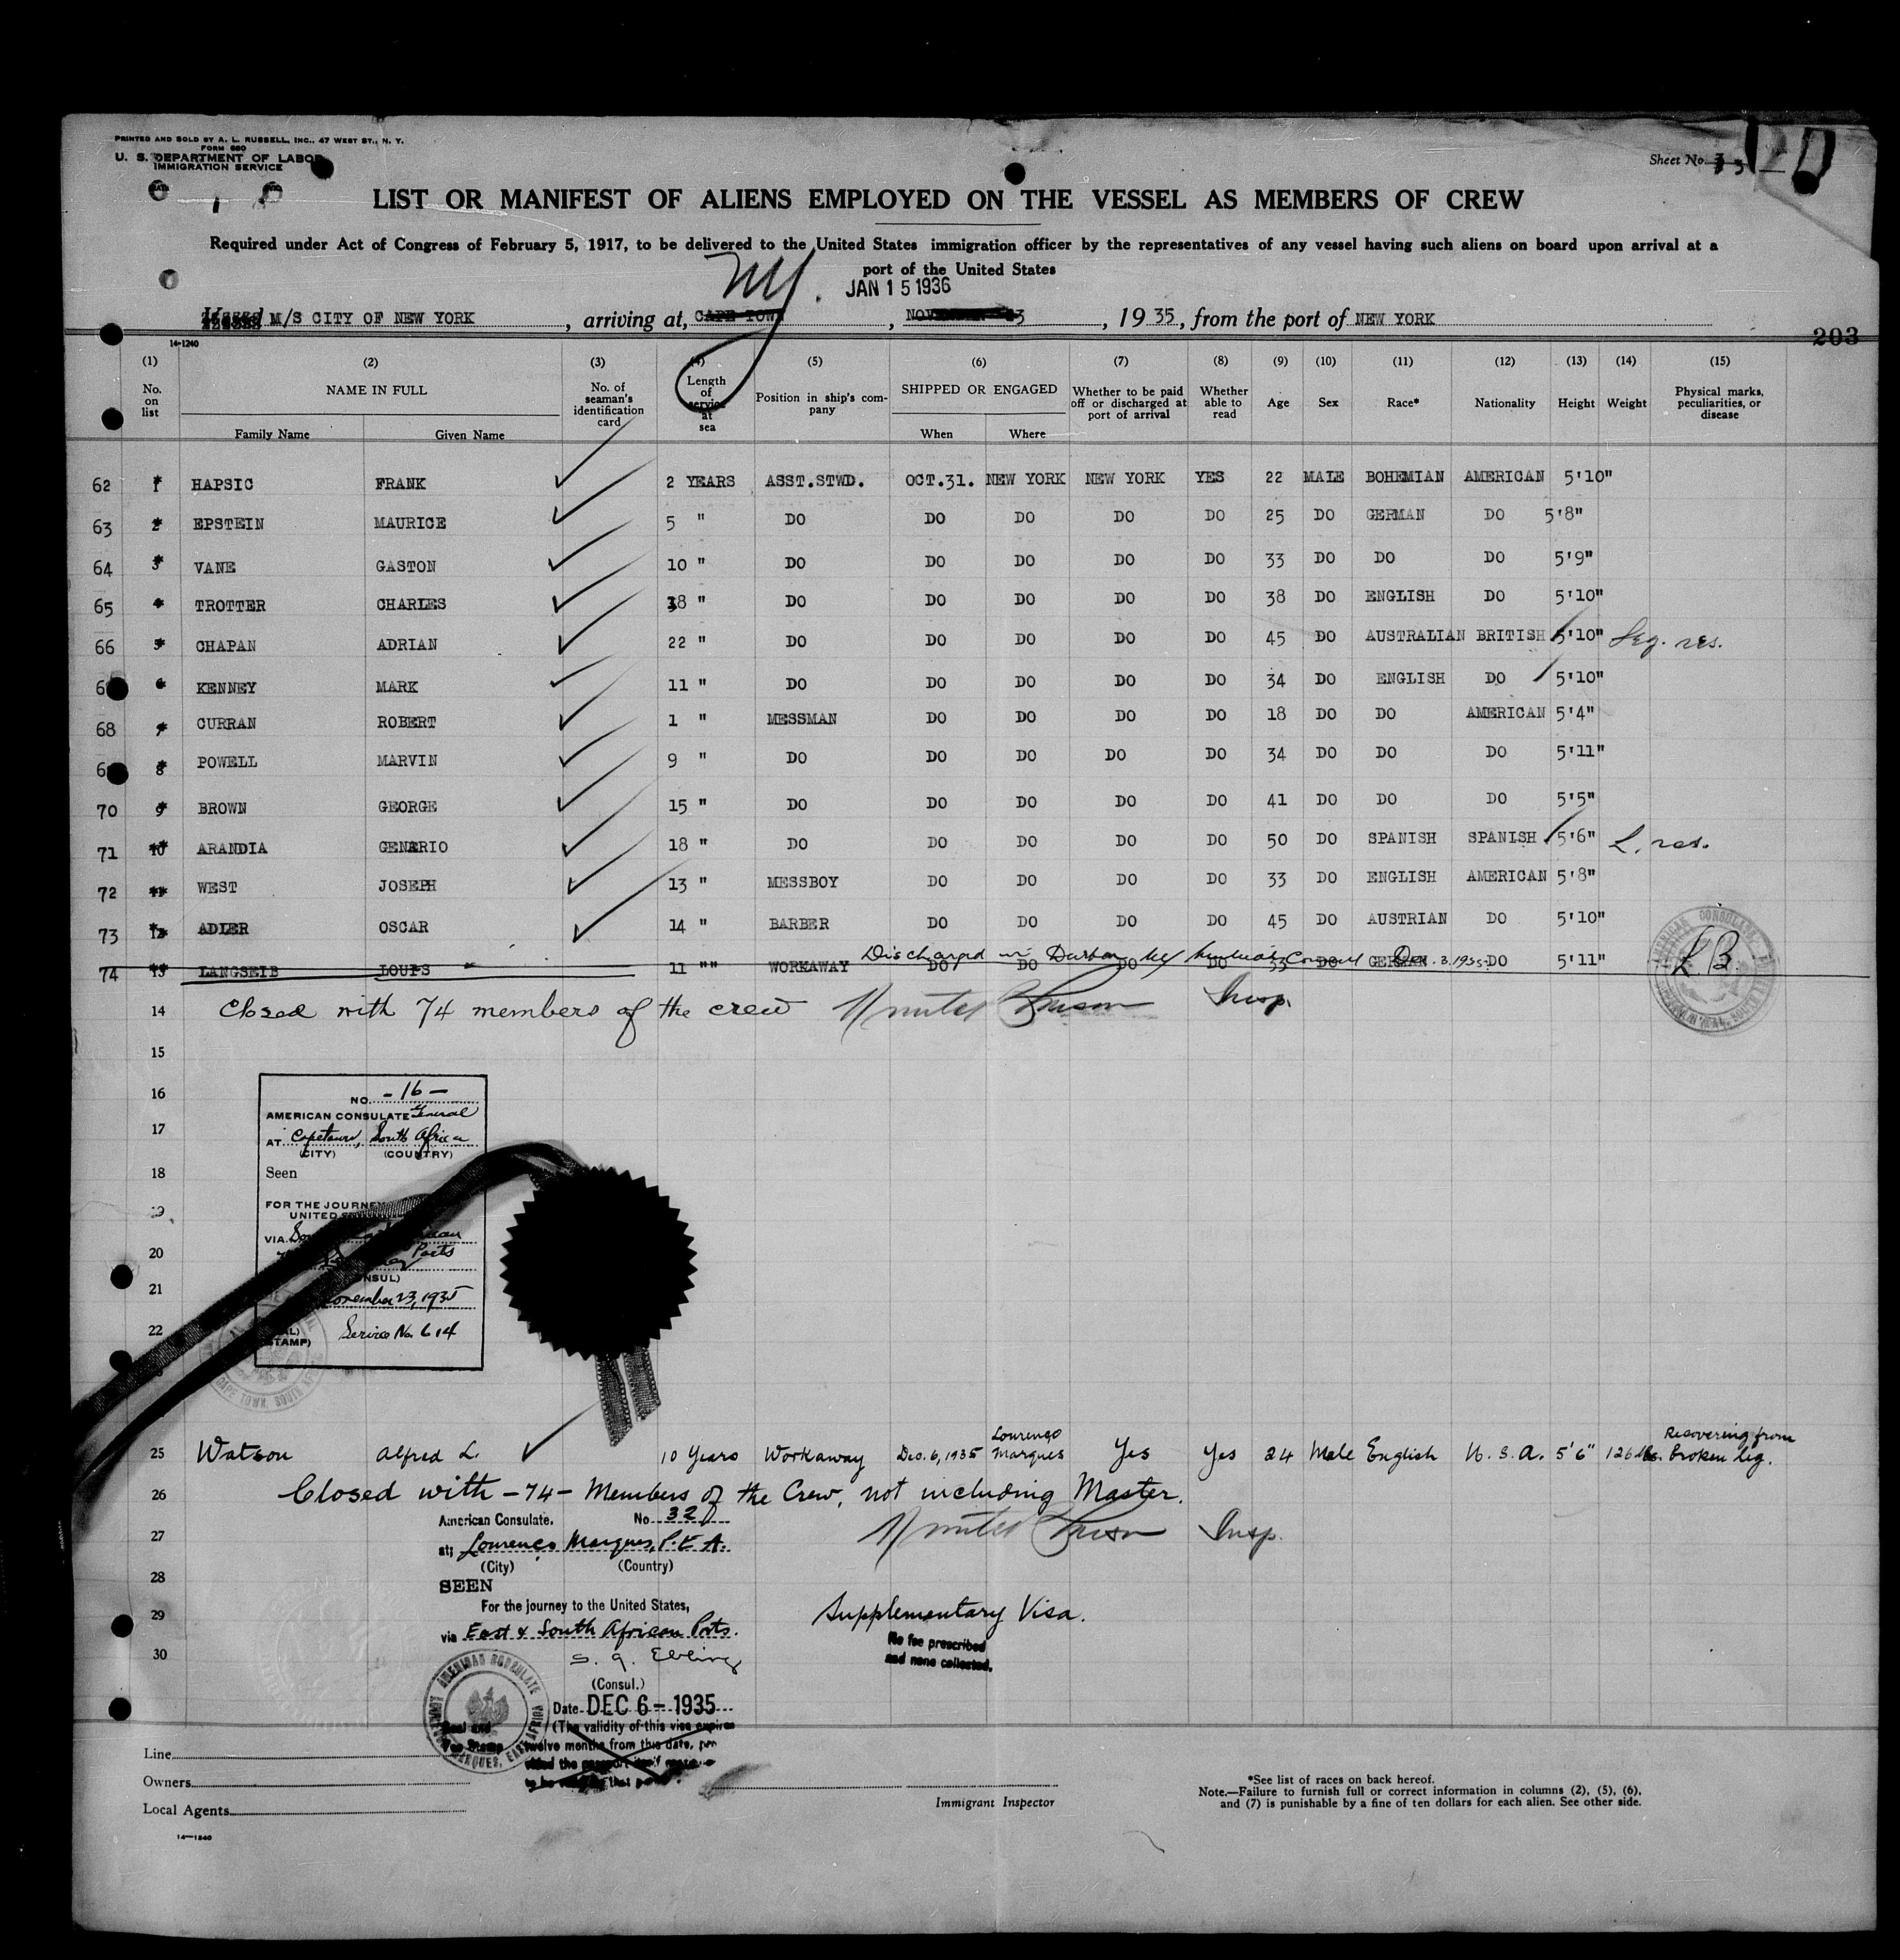 PRINTED AND SOLD BY A. L. RUSSELL, INC., 47 WEST ST., N. Y.
FORM 680
U. S. DEPARTMENT OF LABOR
IMMIGRATION SERVICE
Sheet No.
LIST OR MANIFEST OF ALIENS EMPLOYED ON THE VESSEL AS MEMBERS OF CREW
Required under Act of Congress of February 5, 1917, to be delivered to the United States immigration officer by the representatives of any vessel having such aliens on board upon arrival at a
port of the United States
NY. JAN 15 1936
Vessel M/S CITY OF NEW YORK, arriving at, CAPE TOWN, 1935, from the port of NEW YORK
203
14-1240
(1) (2) (3) (4) (5) (6) (7) (8) (9) (10) (11) (12) (13) (14) (15)
No. on list NAME IN FULL Family Name Given Name No. of seaman's identification card Length of service at sea Position in ship's company SHIPPED OR ENGAGED When Where Whether to be paid off or discharged at port of arrival Whether able to read Age Sex Race* Nationality Height Weight Physical marks, peculiarities, or disease
62 1 HAPSIC FRANK 2 YEARS ASST.STWD. OCT.31. NEW YORK NEW YORK YES 22 MALE BOHEMIAN AMERICAN 5'10"
63 2 EPSTEIN MAURICE 5 " DO DO DO DO DO 25 DO GERMAN DO 5'8"
64 3 VANE GASTON 10 " DO DO DO DO DO 33 DO DO DO 5'9"
65 TROTTER CHARLES 18 " DO DO DO DO DO 38 DO ENGLISH DO 5'10"
66 5 CHAPAN ADRIAN 22 " DO DO DO DO DO 45 DO AUSTRALIAN BRITISH 5'10" Leg. res.
6 KENNEY MARK 11 " DO DO DO DO DO 34 DO ENGLISH DO 5'10"
68 7 CURRAN ROBERT 1 " MESSMAN DO DO DO DO 18 DO DO AMERICAN 5'4"
6 8 POWELL MARVIN 9 " DO DO DO DO DO 34 DO DO DO 5'11"
70 9 BROWN GEORGE 15 " DO DO DO DO DO 41 DO DO DO 5'5"
71 10 ARANDIA GENARIO 18 " DO DO DO DO DO 50 DO SPANISH SPANISH 5'6" L. res.
72 11 WEST JOSEPH 13 " MESSBOY DO DO DO DO 33 DO ENGLISH AMERICAN 5'8"
73 12 ADLER OSCAR 14 " BARBER DO DO DO DO 45 DO AUSTRIAN DO 5'10"
Discharged in Durban by Consul Dec. 3. 1935.
74 13 LANGSEIB LOUPS 11 "" WORKAWAY DO DO DO DO 33 DO GERMAN DO 5'11"
14 Closed with 74 members of the crew Insp.
15
16
17
18
19
20
21
22
NO. -16-
AMERICAN CONSULATE General
AT Capetown, South Africa
(CITY) (COUNTRY)
Seen
FOR THE JOURNEY
UNITED
VIA
Ports
November 23, 1935
STAMP) Service No. 614
CAPE TOWN, SOUTH
25 Watson Alfred L. 10 Years Workaway Dec. 6, 1935 Lourenço Marques Yes Yes 24 Male English U. S. A. 5'6" 126 lbs. Recovering from broken leg.
26 Closed with -74- Members of the Crew, not including Master.
27 Insp.
28
29
30
American Consulate. No. 32
at; Lourenço Marques, P. E. A.
(City) (Country)
SEEN
For the journey to the United States,
via East & South African Ports.
S. G. Ebling
(Consul.)
Date DEC 6 - 1935
(The validity of this visa expires
twelve months from this date,
AMERICAN CONSULATE
Supplementary Visa.
No fee prescribed
and none collected.
Line
Owners
Local Agents
14-1240
Immigrant Inspector
*See list of races on back hereof.
Note.—Failure to furnish full or correct information in columns (2), (5), (6),
and (7) is punishable by a fine of ten dollars for each alien. See other side.